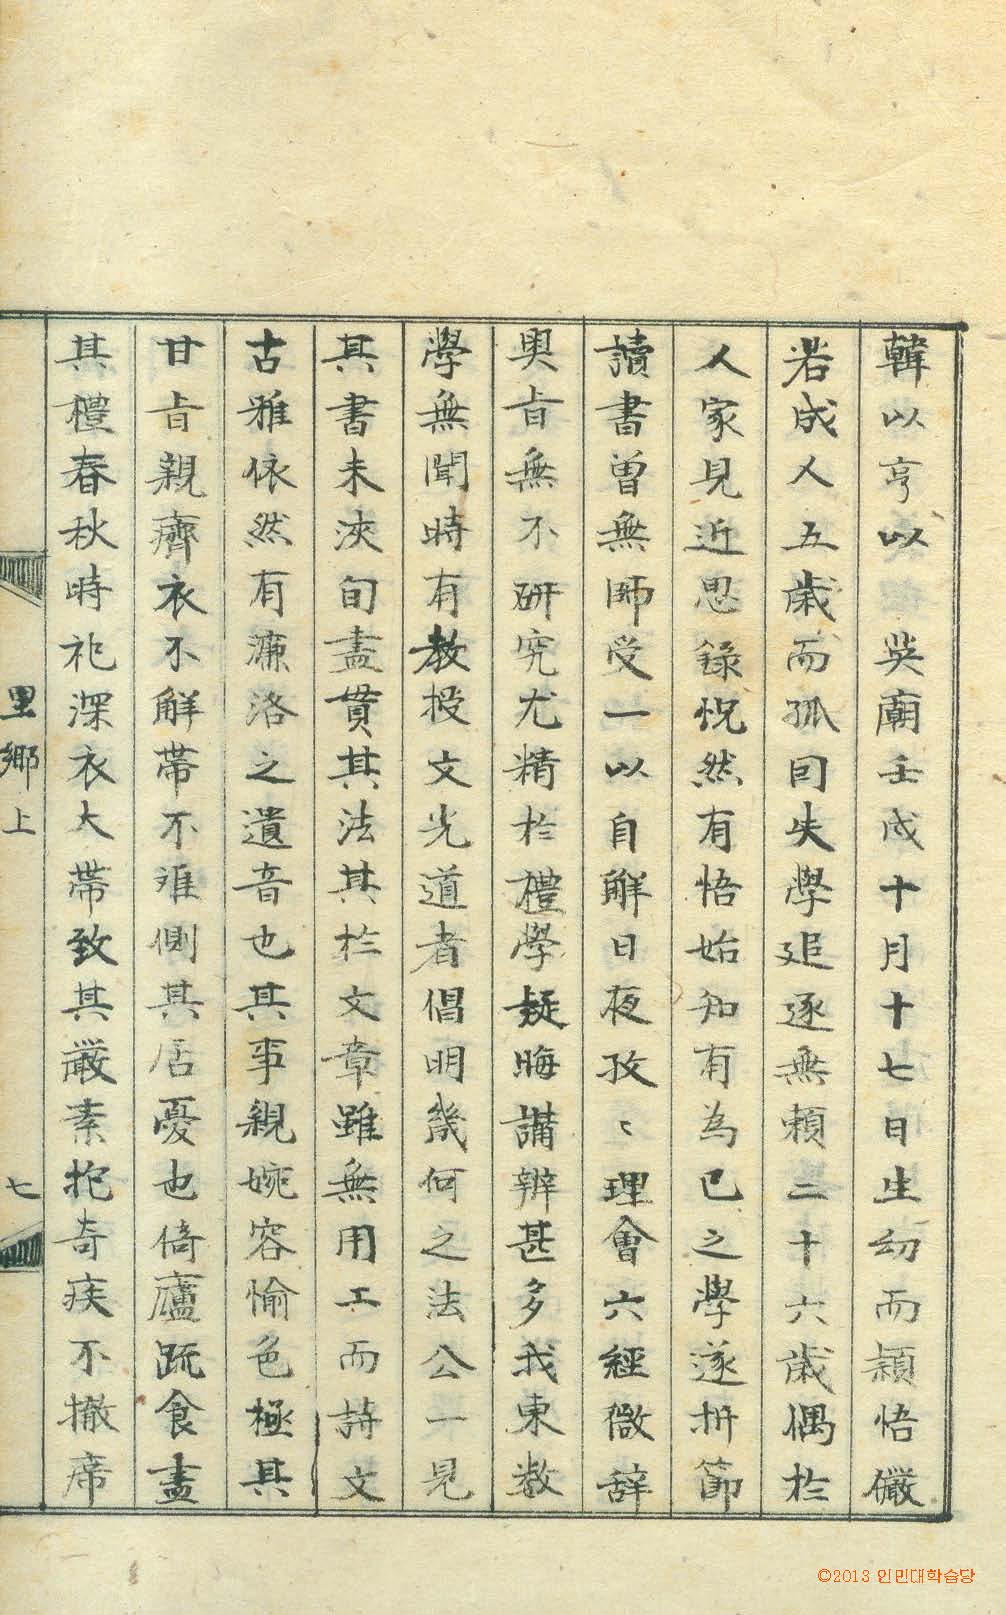 韓以亨以　英廟壬戌十月十七日生幼而穎悟儼
若成人五歲而孤因失學追逐無賴二十六歲偶於
人家見近思錄怳然有悟始知有為已之學遂折節
讀書曾無師受一以自解日夜孜〻理會六經微辞
奧旨無不研究尤精於禮學疑晦講辨甚多我東數
學無聞時有教授文光道者倡明幾何之法公一見
其書未浹旬盡貫其法其於文章雖無用工而詩文
古雅依然有濂洛之遺音也其事親婉容愉色極其
甘旨親癠衣不解帶不離側其居憂也倚廬疏食盡
其禮春秋時祀深衣大帶致其嚴素抱奇疾不撤席
里鄉上
七
©2013 인민대학습당